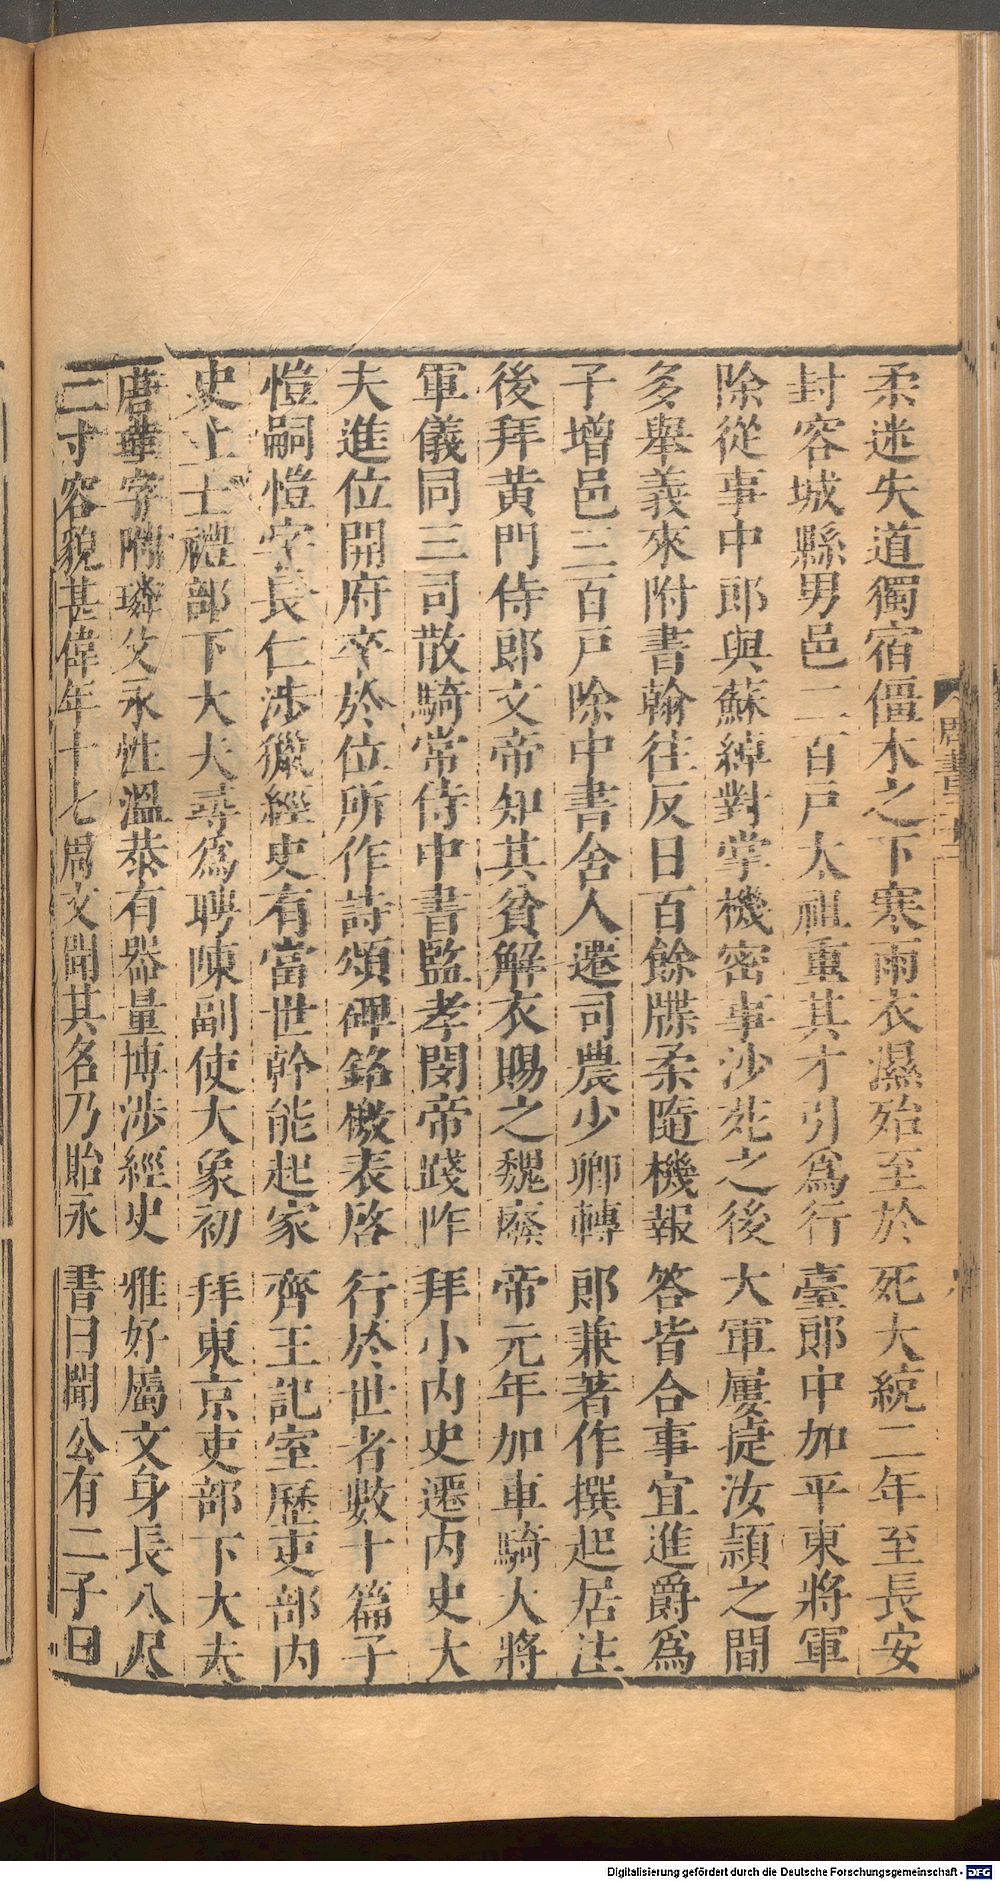 柔迷失道獨宿僵木之下寒雨衣濕殆至於死大統二年至長安
封容城縣男邑二百戶太祖重其才引爲行臺郎中加平東將軍
除從事中郎與蘇綽對掌機密事沙苑之後大軍屢捷汝潁之間
多舉義來附書翰往反日百餘牒柔隨機報答皆合事宜進爵爲
子增邑三百戶除中書舍人遷司農少卿轉郎兼著作撰起居注
後拜黃門侍郎文帝知其貧解衣賜之魏廢帝元年加車騎大將
軍儀同三司散騎常侍中書監孝閔帝踐阼拜小內史遷內史大
夫進位開府卒於位所作詩頌碑銘檄表啓行於世者數十篇子
愷嗣愷字長仁涉獵經史有當世幹能起家齊王記室歷吏部內
史上士禮部下大夫尋爲聘陳副使大象初拜東京吏部下大夫
唐瑾字附璘父永性溫恭有器量博涉經史雅好屬文身長八尺
二寸容貌甚偉年十七周文聞其名乃貽永書曰聞公有二子曰
周書三十二
Digitalisierung gefördert durch die Deutsche Forschungsgemeinschaft - DFG